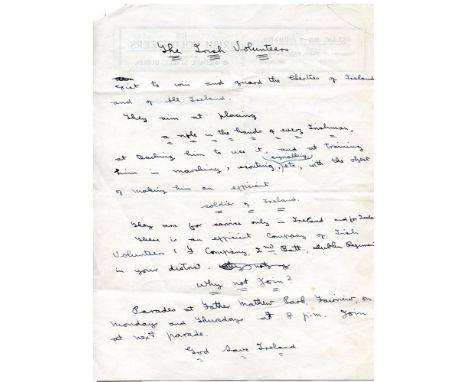 The Irish Volunteers
exist to win and guard the liberties of Ireland
and of all Ireland.
They aim at placing
a rifle in the hands of every Irishman,
at teaching him to use it, and at training
signalling
him in marching, scouting, etc., with the object
of making him an efficient
soldier of Ireland.
They are for service only in Ireland and for Ireland
There is an efficient Company of Irish
Volunteers (F. Company, 2nd Batt., Dublin Regiment
in your district.
Why not Join?
Parades at Father Mathew Park, Fairview, on
Mondays and Thursdays at 8 p.m. Join
at next parade.
God Save Ireland.